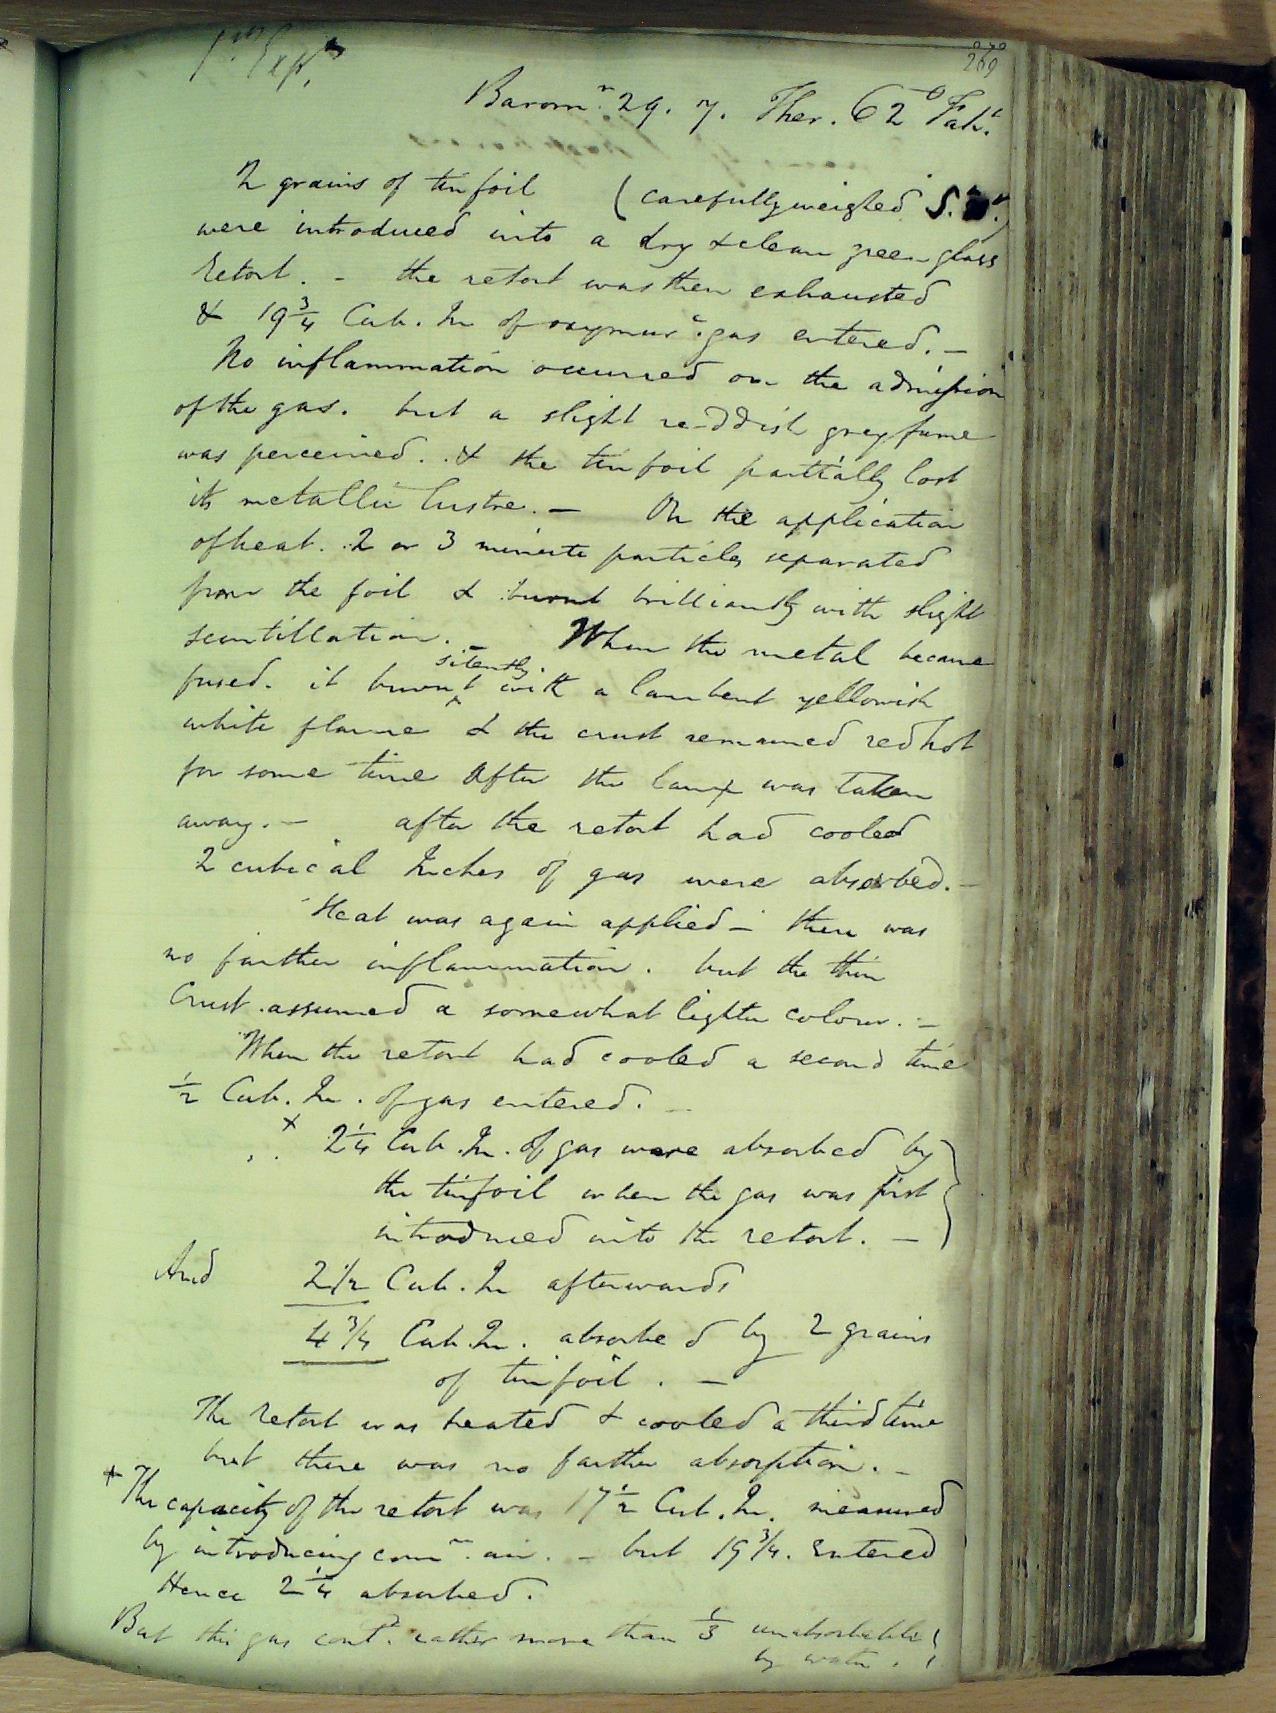 1st Expt.
269
Baromr. 29. 7. Ther. 62° Faht.
2 grains of tinfoil (carefully weighed S.
were introduced into a dry & clean green glass
retort. - the retort was then exhausted
& 19 3/4 Cub. In of oxymurc. gas entered. -
No inflammation occurred on the admission
of the gas. but a slight reddish grey fume
was perceived. & the tinfoil partially lost
its metallic lustre. - On the application
of heat. 2 or 3 minute particles separated
from the foil & burnt brilliantly with slight
scintillation. - When the metal became
fused. it burnt silently with a lambent yellowish
white flame & the crust remained red hot
for some time After the lamp was taken
away. - after the retort had cooled
2 cubical Inches of gas were absorbed. -
Heat was again applied - there was
no farther inflammation. but the thin
Crust assumed a somewhat lighter colour. -
When the retort had cooled a second time
1/2 Cub. In. of gas entered. -
× 2 1/4 Cub. In. of gas were absorbed by
the tinfoil when the gas was first
introduced into the retort. -
And 2 1/2 Cub. In afterwards
4 3/4 Cub. In. absorbed by 2 grains
of tinfoil. -
The retort was heated & cooled a third time
but there was no farther absorption. -
× The capacity of the retort was 17 1/2 Cub. In. measured
by introducing comn. air. - but 19 3/4. Entered
Hence 2 1/4 absorbed.
But this gas contd. rather more than 1/3 unabsorbable
by water. !